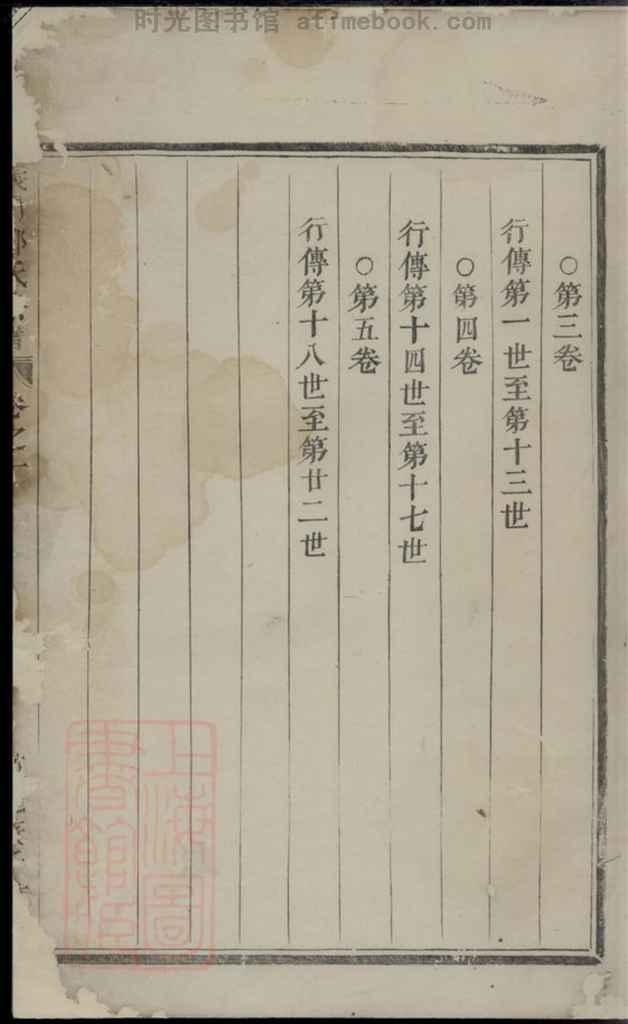 时光图书馆 atimebook.com
○第三卷
行傳第一世至第十三世
○第四卷
行傳第十四世至第十七世
○第五卷
行傳第十八世至第廿二世
上海圖
書館藏